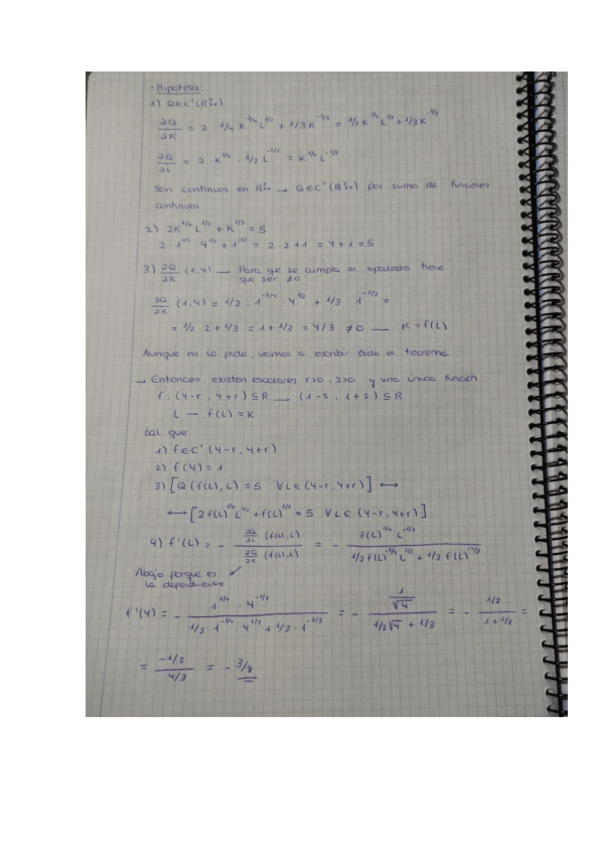 · Hipotesis:
1) Q∈C¹(R²₊₊)
∂Q/∂K = 2 · 1/4 K^-3/4 L^1/2 + 1/3 K^-2/3 = 1/2 K^-3/4 L^1/2 + 1/3 K
∂Q/∂L = 2 · K^1/4 · 1/2 L^-1/2 = K^1/4 L^-1/2
Son continuas en R²₊₊ → Q∈C¹(R²₊₊) por suma de funciones
continuas
2) 2K^1/4 L^1/2 + K^1/3 = 5
2 · 1^1/4 · 4^1/2 + 1^1/3 = 2 · 2 + 1 = 4 + 1 = 5
3) ∂Q/∂K (1,4) — Para que se cumpla el apartado tiene
que ser ≠0
∂Q/∂K (1,4) = 1/2 · 1^-3/4 · 4^1/2 + 1/3 · 1 =
= 1/2 · 2 + 1/3 = 1 + 1/3 = 4/3 ≠ 0 — K = f(L)
Aunque no lo pida, vamos a escribir todo el teorema
→ Entonces, existen escalares r>0, s>0 y una única función
f: (4-r, 4+r) ⊆ R — (1-s, 1+s) ⊆ R
L — f(L) = K
tal que:
1) f∈C¹(4-r, 4+r)
2) f(4) = 1
3) [Q(f(L), L) = 5 ∀L∈(4-r, 4+r)] ↔
↔ [2f(L)^1/4 L^1/2 + f(L)^1/3 = 5 ∀L∈(4-r, 4+r)]
4) f'(L) = - ∂Q/∂L (f(L),L) / ∂Q/∂K (f(L),L) = - f(L)^1/4 L^-1/2 / 1/2 f(L)^-3/4 L^1/2 + 1/3 f(L)
Abajo porque es
la dependiente
f'(4) = - 1^1/4 · 4^-1/2 / 1/2 · 1^-3/4 · 4^1/2 + 1/3 · 1 = - 1/√4 / 1/2 √4 + 1/3 = - 1/2 / 1 + 1/2 =
= -1/2 / 4/3 = - 3/8